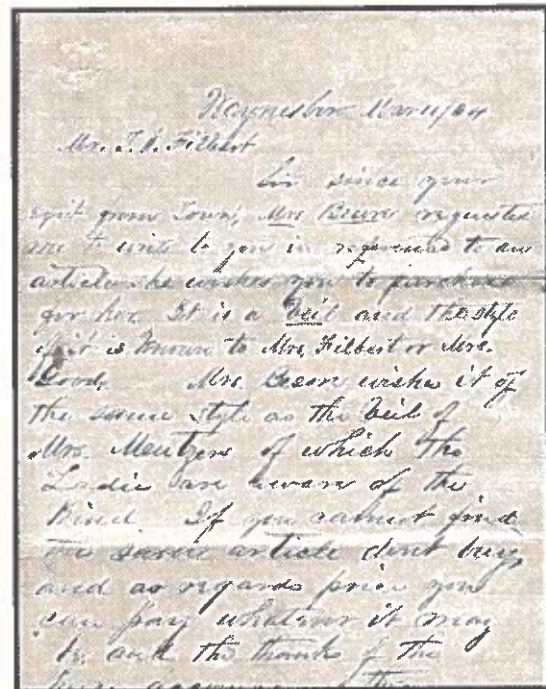 Waynesboro Mar 11/64
Mr. T. J. Filbert
Sir since your
exit from Town, Mrs Besore requested
me to write to you in regaurd to an
article she wishes you to purchase
for her. It is a Veil and the style
of it is known to Mrs. Filbert or Mrs.
Good. Mrs. Besore wishes it of
the same style as the Veil of
Mrs. Mentzers of which the
Ladie are aware of the
Kind. If you cannot find
the same article dont buy
and as regards price you
can pay whatever it may
be and the thanks of the